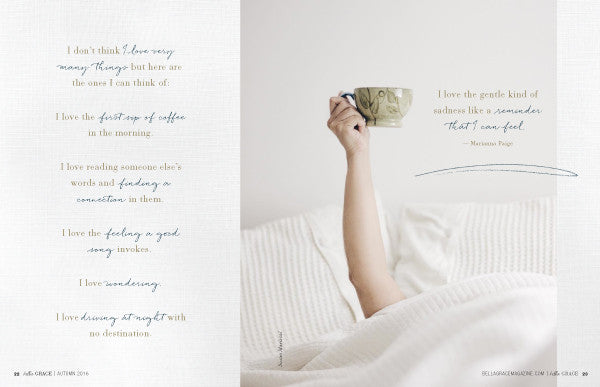 I don't think I love very
many things but here are
the ones I can think of:
I love the first sip of coffee
in the morning.
I love reading someone else's
words and finding a
connection in them.
I love the feeling a good
song invokes.
I love wondering.
I love driving at night with
no destination.
I love the gentle kind of
sadness like a reminder
that I can feel.
— Marianna Paige
28 bella GRACE | AUTUMN 2016
BELLAGRACEMAGAZINE.COM | bella GRACE 29